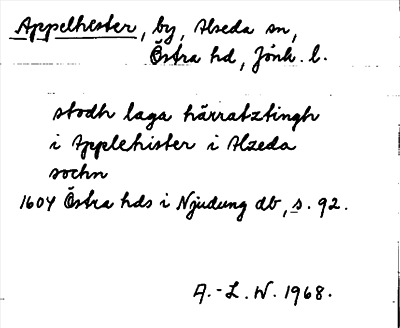 Appelhester, by, Alseda sn,
Östra hd, Jönk. l.
stodh laga härratztingh
i Applehister i Alzeda
sochn
1604 Östra hds i Njudung db, s. 92.
A.-L. W. 1968.